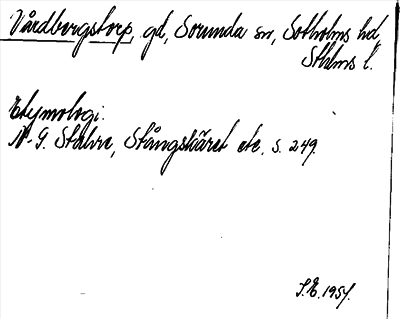 Vårdbergstorp, gd, Sorunda sn, Sotholms hd,
Sthlms l.
Etymologi.
N-G. Stahre, Stångskäret etc. s. 249.
S.E. 1957.